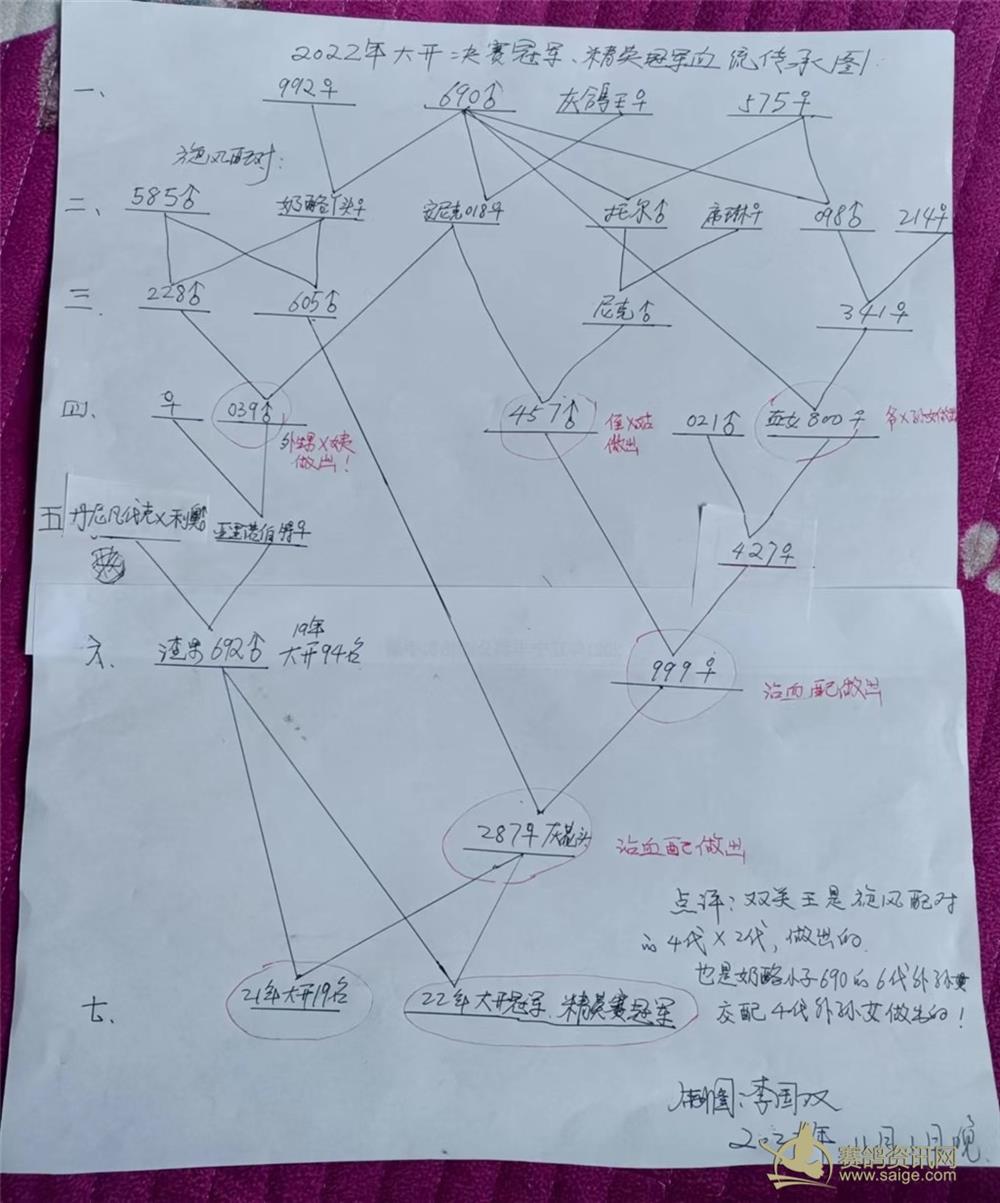 2022年大开决赛冠军、精英冠军血流传承图
一、 992♀ 690♂ 灰鸽王♀ 575♀
旋风配对:
二、 585♂ 奶酪丫头♀ 安尼克018♀ 托尔♂ 席琳♀ 098♂ 214♀
三、 228♂ 605♂ 尼克♂ 341♀
四、 ♀ 039♂ 457♂ 021♂ 800♀
外甥X姨
做出!
侄X姑
做出
爷X孙女做出
五 丹尼凡代克X利奥 亚里诺伯特♀ 427♀
六、 渣男692♂ 19年
大开94名
999♀
沾血配做出
287♀灰花头 沾血配做出
点评:双关王是旋风配对
的4代X2代,做出的.
也是奶酪小子690的6代外孙
交配4代外孙女做出的!
七、 21年大开19名 22年大开冠军、精英赛冠军
制图:李国双
11月1日晚
赛鸽资讯网
www.saige.com